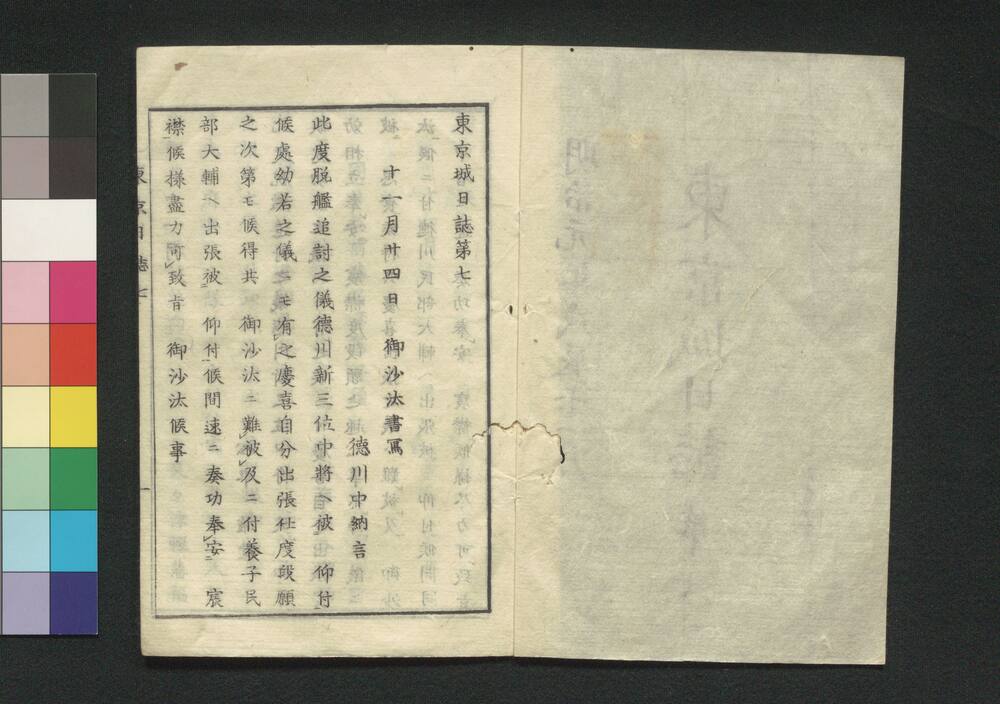 東京城日誌第七
十一月廿四日 御沙汰書寫
德川中納言
此度脱艦追討之儀德川新三位中將ヘ被 仰付
候處幼若之儀ニモ有之慶喜自分出張仕度段願
之次第モ候得共 御沙汰ニ難被及ニ付養子民
部大輔ヘ出張被 仰付候間速ニ奏功奉安 宸
襟候様盡力可致旨 御沙汰候事
一